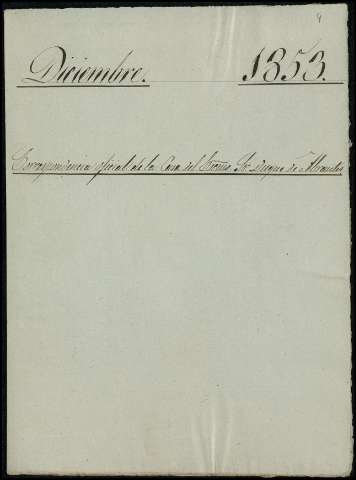 4
Diciembre. 1853.
Correspondencia oficial de la Casa del Excmo. Sr. Duque de Abrantes